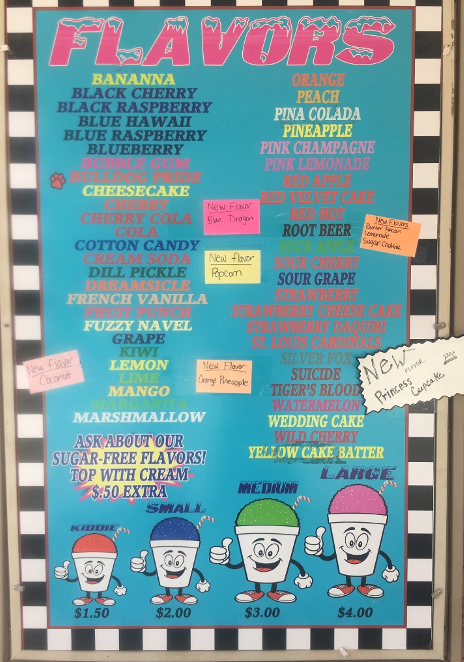 FLAVORS
BANANNA
BLACK CHERRY
BLACK RASPBERRY
BLUE HAWAII
BLUE RASPBERRY
BLUEBERRY
BUBBLE GUM
BULLDOG PRIDE
CHEESECAKE
CHERRY
CHERRY COLA
COLA
COTTON CANDY
CREAM SODA
DILL PICKLE
DREAMSICLE
FRENCH VANILLA
FRUIT PUNCH
FUZZY NAVEL
GRAPE
KIWI
LEMON
LIME
MANGO
MARGARITA
MARSHMALLOW
ORANGE
PEACH
PINA COLADA
PINEAPPLE
PINK CHAMPAGNE
PINK LEMONADE
RED APPLE
RED VELVET CAKE
RED HOT
ROOT BEER
SOUR APPLE
SOUR CHERRY
SOUR GRAPE
STRAWBERRY
STRAWBERRY CHEESE CAKE
STRAWBERRY DAQUIRI
ST. LOUIS CARDINALS
SILVER FOX
SUICIDE
TIGER'S BLOOD
WATERMELON
WEDDING CAKE
WILD CHERRY
YELLOW CAKE BATTER
New Flavor
Blue Dragon
New flavor
Popcorn
New Flavor
Orange Pineapple
New Flavor
Coconut
New Flavors
Butter Pecan
Lemonade
Sugar Cookie
New FLAVOR
Princess
Cupcake
ASK ABOUT OUR
SUGAR-FREE FLAVORS!
TOP WITH CREAM
$.50 EXTRA
KIDDIE
SMALL
MEDIUM
LARGE
$1.50
$2.00
$3.00
$4.00